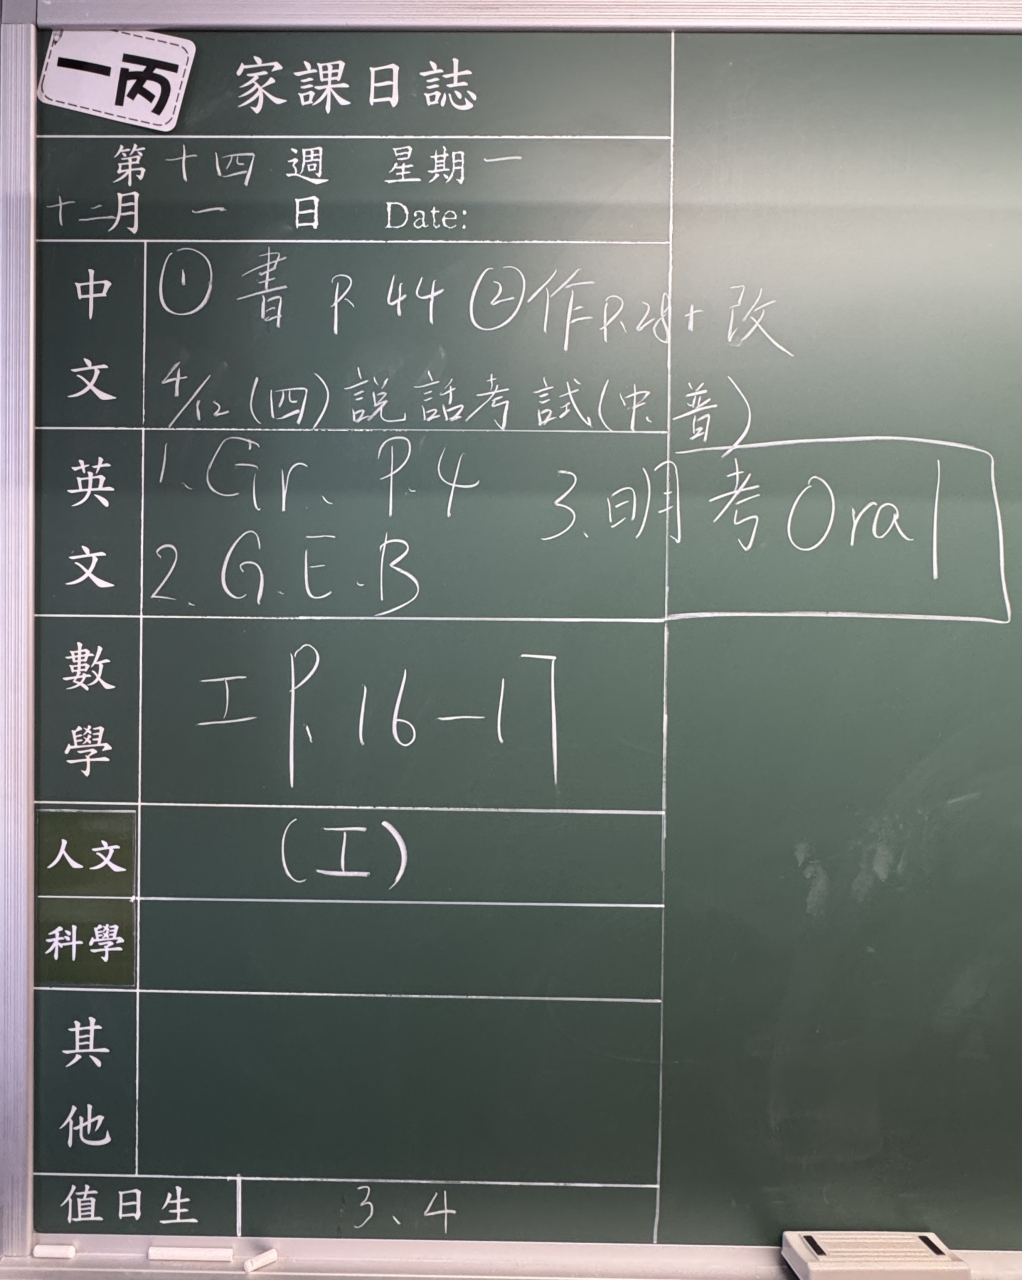 一丙
家課日誌
第十四週 星期一
十二月 一 日 Date:
中文
① 書 P. 44 ② 作 P.28+ 改
4/12 (四) 說話考試(中.普)
英文
1. Gr. P.4
2. G.E.B
3. 明考 Oral
數學
工 P. 16-17
人文
(工)
科學
其他
值日生
3、4